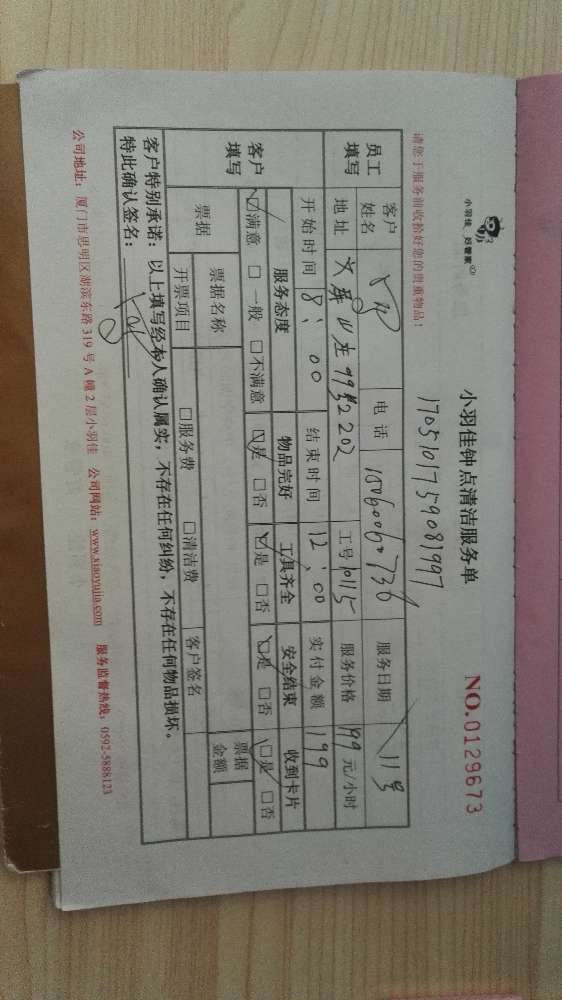 小羽佳 好管家
小羽佳钟点清洁服务单
NO.0129673
1705101759081997
请您于服务前收拾好您的贵重物品！
员工填写
客户姓名
电话
服务日期 11号
地址 99号2202
工号 10115
服务价格 199 元/小时
开始时间 8：00
结束时间 12：00
实付金额 199
客户填写
服务态度 物品完好 工具齐全 安全结束 收到卡片
☑满意 □一般 □不满意 ☑是 □否 ☑是 □否 ☑是 □否 ☑是 □否
票据
票据名称
票据金额
开票项目 □服务费 □清洁费 客户签名
客户特别承诺：以上填写经本人确认属实，不存在任何纠纷，不存在任何物品损坏。
特此确认签名：
公司地址：厦门市思明区湖滨东路 319 号 A 幢 2 层小羽佳 公司网站：www.xiaoyujia.com 服务监督热线：0592-5888123